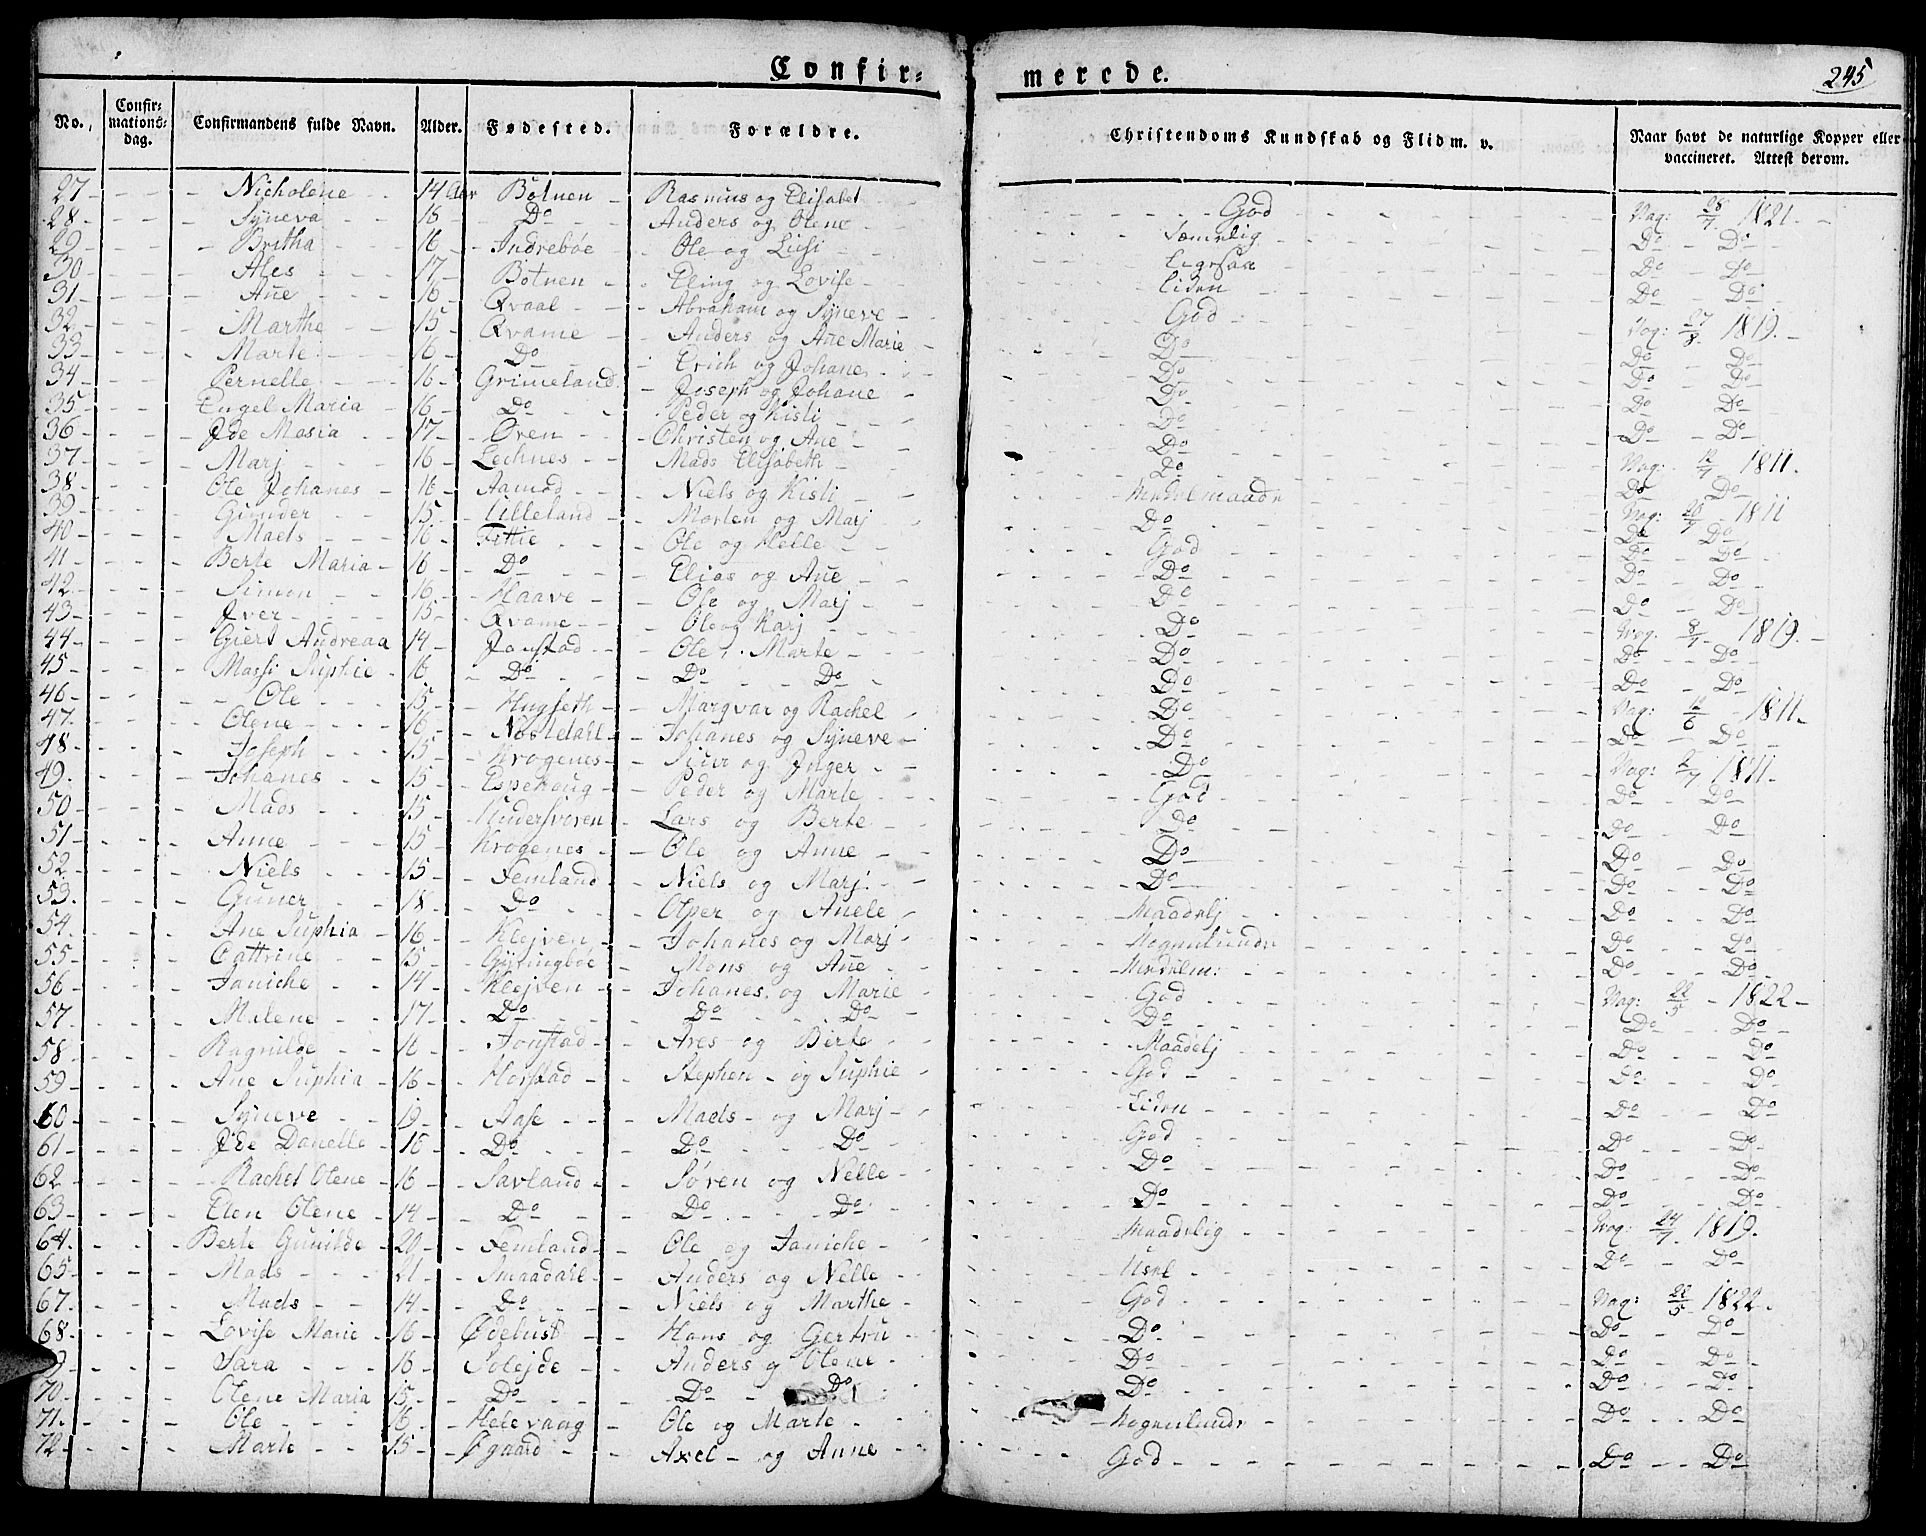 Confir= merede. 245
No. Confir= mations= dag. Confirmandens fulde Navn. Alder. Fødested. Forældre. Christendoms Kundskab og Flid m. v. Naar havt de naturlige Kopper eller vaccineret. Attest derom.
27 Nicholene 14 Aar Botnen Rasmus og Elisabet God Vag: 28/7 1821.
28 Syneva 16 Do Anders og Olene Do Do
29 Britha 16 Indrebøe Ole og Lusi Do Do
30 Ales 17 Botnen Eling og Lovise Liden Do Do
31 Ane 16 Qvaal Abraham og Syneve God Vag: 27/8 1819.
32 Marthe 15 Qvame Anders og Ane Marie Do Do Do
33 Marte 16 Do Erich og Johane Do Do Do
34 Pernelle 16 Grimeland Joseph og Johane Do Do Do
35 Engel Maria 16 Do Peder og Kisli Do Do Do
36 Ide Masia 17 Øren Christen og Ane Do Vag: 12/7 1811.
37 Marj 16 Lechnes Mads Elisabeth Do Do Do
38 Ole Johanes 16 Aamod Niels og Kisli Vag: 1811
39 Gunder 15 Lilleland Morten og Marj Do Do Do
40 Maels 16 Fittie Ole og Helle God Do Do
41 Berte Maria 16 Do Elias og Ane Do Do Do
42 Simon 16 Haave Ole og Marj Do Do Do
43 Iver 15 Qvame Ole og Karj Do Vag: 8/7 1819.
44 Giert Andreaa 14 Jonstad Ole, Marte Do Do Do
45 Massi Suphie 16 Do Do Do Do Do Do
46 Ole 15 Hugseth Margvar og Rachel Do Vag: 12/6 1811.
47. Olene 16 Nordedall Johanes og Syneve Do Do Do
48 Joseph 15 Krogenes Siur og Inger Do Vag: 1811.
49. Johanes 15 Espehoug Peder og Marte God Do Do
50 Mads 15 Lars og Berte Do Do Do
51 Anne 15 Krogenes Ole og Anne Do Do Do
52 Niels 15 Femland Niels og Marj Do Do Do
53. Guner 18 Do Olper og Anele Maadelj Do Do
54. Ane Suphia 16 Klejven Johanes og Marj Do Do
55 Cattrine 15 Gytingbøe Mons og Ane Do Do
56 Janiche 14 Klejven Johanes og Marie God Vag: 22/5 1822
57. Malene 17 Do Do Do Do Do Do
58 Ragnilde 16 Jonstad Ares og Birte Maadelj Do Do
59 Ane Suphia 16 Horstad Stephen og Suphie God Do Do
60 Syneve 19 Aase Maels og Marj Liden Do Do
61 Ide Danelle 16 Do Do Do God Do Do
62 Rachel Olene 16 Savland Søren og Nelle Do Do Do
63 Elen Olene 14 Do Do Do Do Do Do
64. Berte Gunilde 20 Femland Ole og Janiche Maadelig Vag: 24/7 1819.
65 Mads 21 Smaadall Anders og Nelle Usel Do Do
67. Mads 14 Do Niels og Marthe God Vag: 22/5 1822.
68. Lovise Marie 16 Ødelust Hans og Gertru Do Do Do
Sara 16 Solejde Anders og Olene Do Do Do
70. Olene Maria 15 Do Do Do Do Do Do
71. Ole 16 Helevaag Ole og Marte Do Do
72 Marte 15 Øgaard Axel og Anne God Do Do